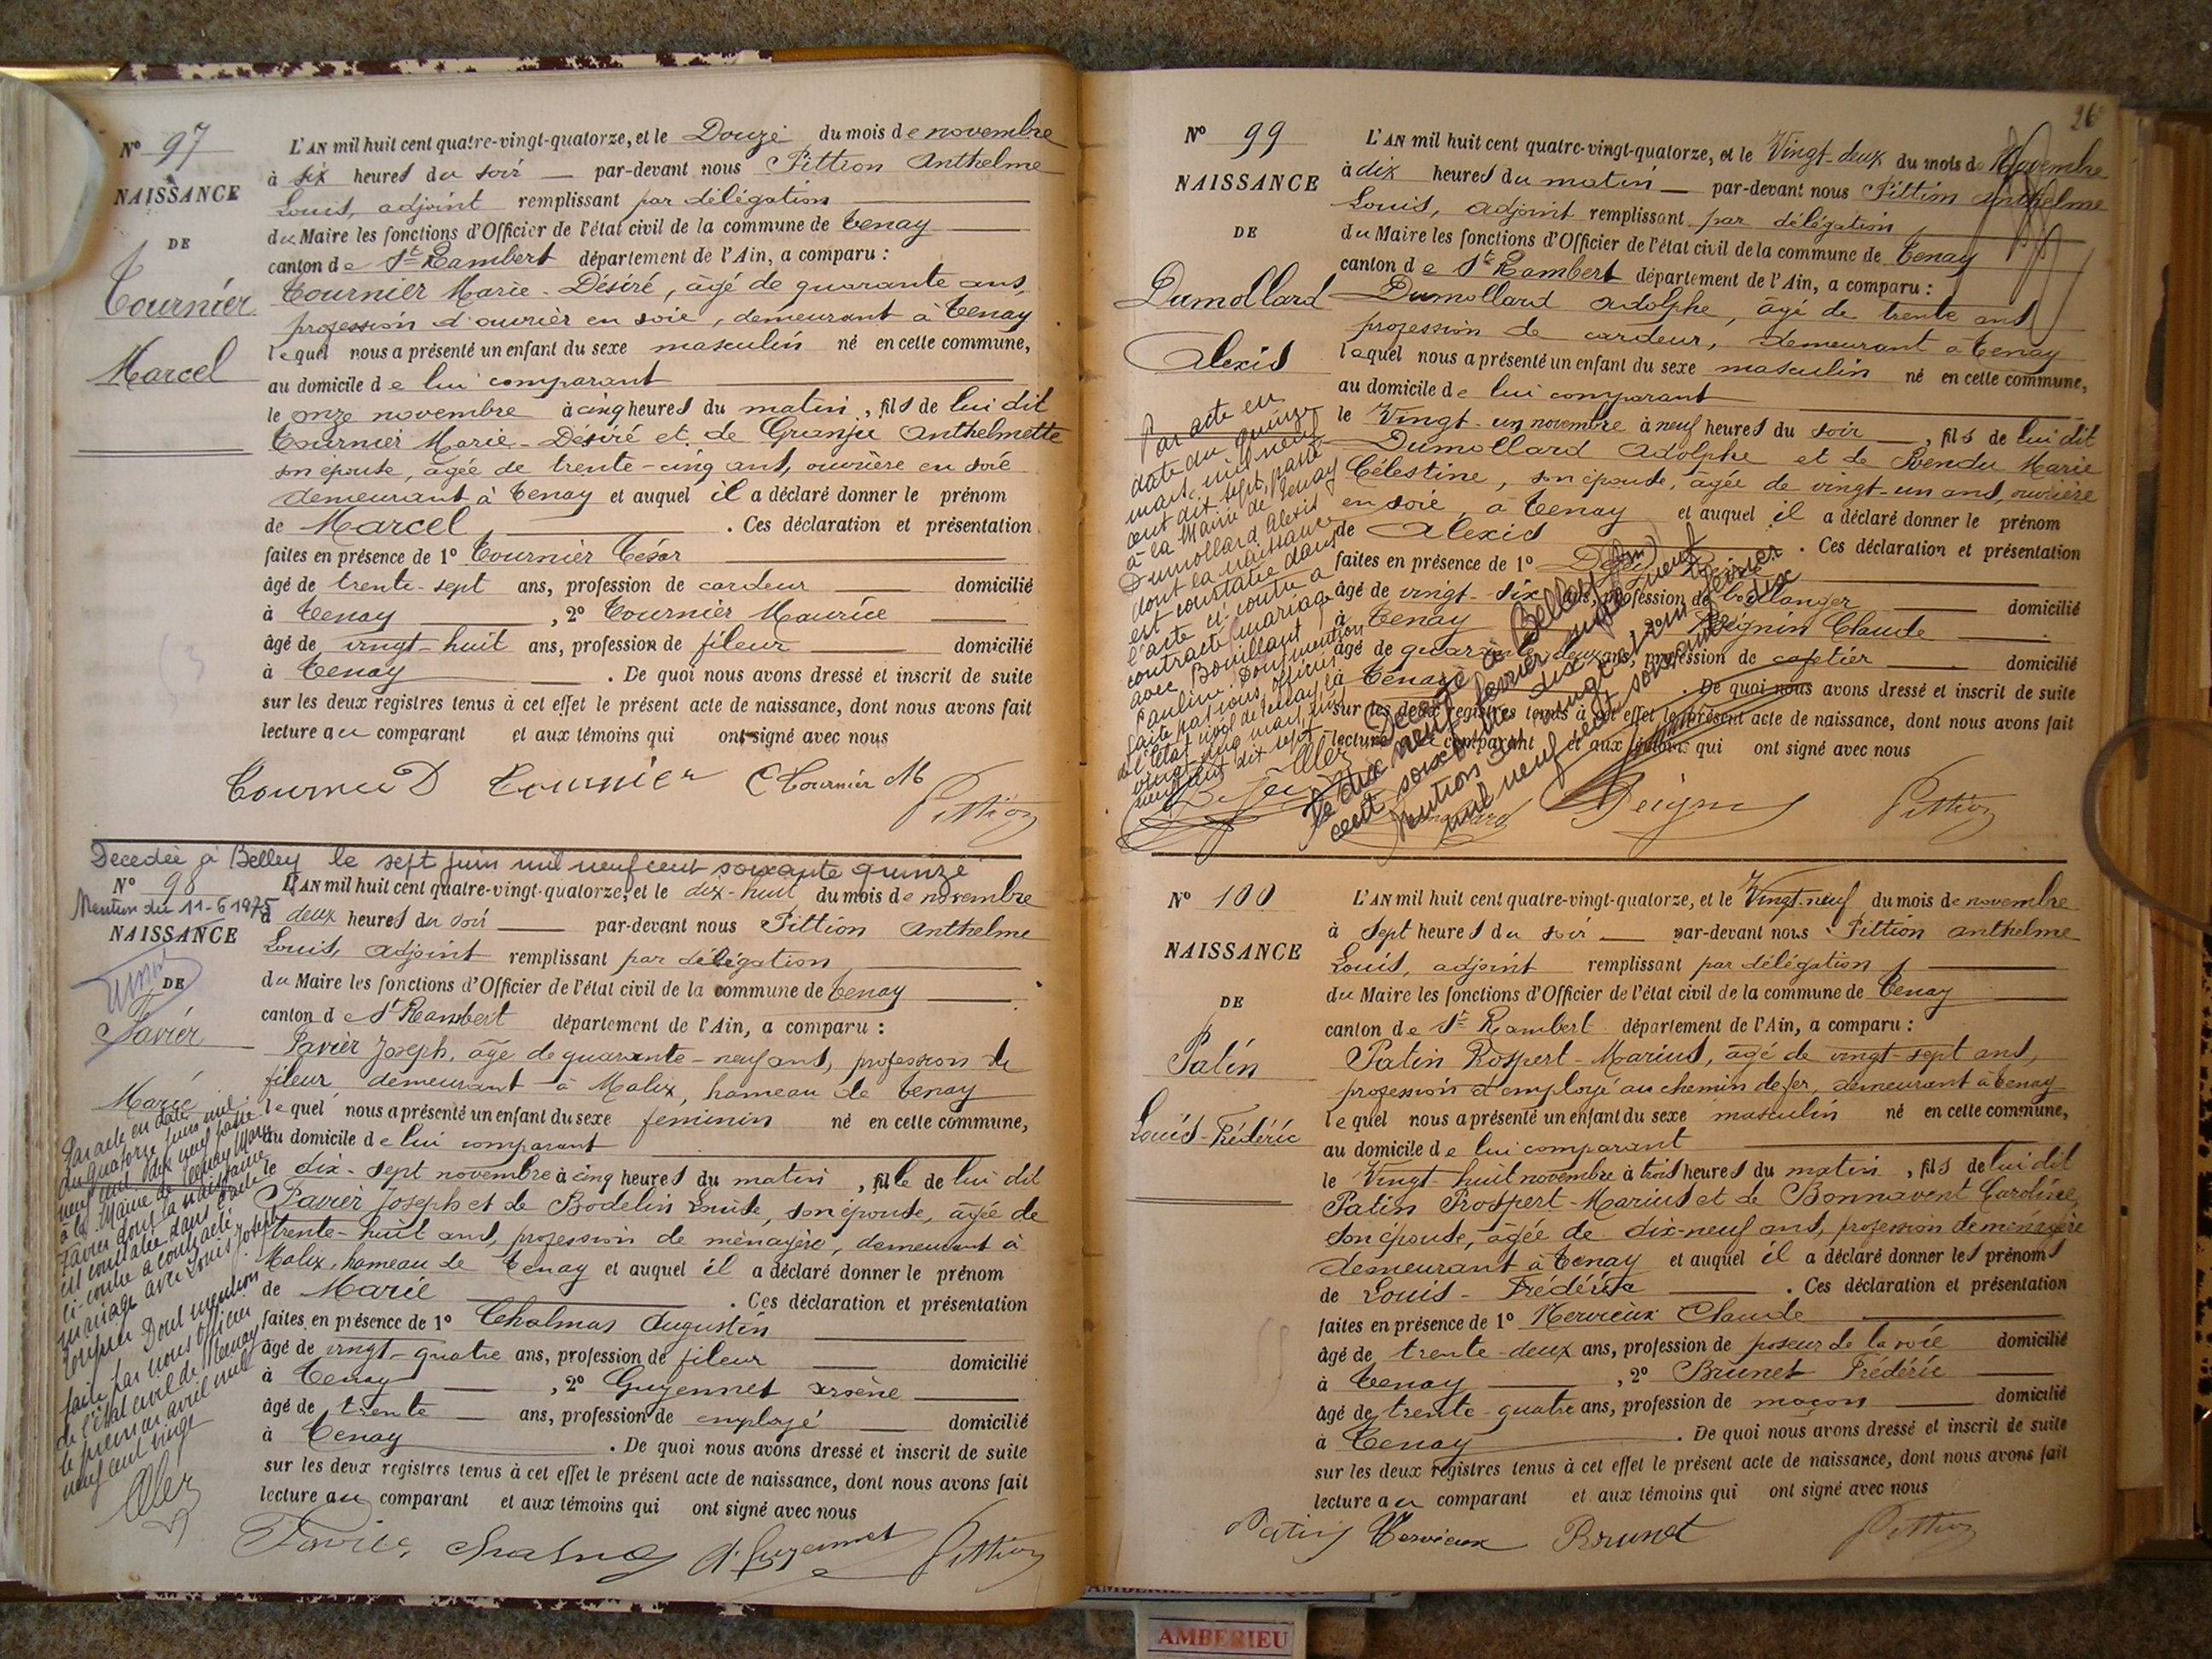 Nº 97
NAISSANCE
DE
Tournier
Marcel
L'AN mil huit cent quatre-vingt-quatorze, et le Douze du mois de novembre
à six heures du soir par-devant nous Pittion Anthelme
Louis, adjoint remplissant par délégation
du Maire les fonctions d'Officier de l'état civil de la commune de Tenay
canton de St Rambert département de l'Ain, a comparu :
Tournier Marie-Désiré, âgé de quarante ans,
profession d'ouvrier en soie, demeurant à Tenay
lequel nous a présenté un enfant du sexe masculin né en cette commune,
au domicile de lui comparant
le onze novembre à cinq heures du matin, fils de lui dit
Tournier Marie-Désiré et de Granju Anthelmette
son épouse, âgée de trente-cinq ans, ouvrière en soie
demeurant à Tenay et auquel il a déclaré donner le prénom
de Marcel . Ces déclaration et présentation
faites en présence de 1º Tournier César
âgé de trente-sept ans, profession de cardeur domicilié
à Tenay , 2º Tournier Maurice
âgé de vingt-huit ans, profession de fileur domicilié
à Tenay . De quoi nous avons dressé et inscrit de suite
sur les deux registres tenus à cet effet le présent acte de naissance, dont nous avons fait
lecture au comparant et aux témoins qui ont signé avec nous
Tournier D Tournier C Tournier M
Pittion
Decedée à Belley le sept juin mil neuf cent soixante quinze
Nº 98
Mention du 11-6 1975
NAISSANCE
DE
Favier
Marie
L'AN mil huit cent quatre-vingt-quatorze, et le dix-huit du mois de novembre
à deux heures du soir par-devant nous Pittion Anthelme
Louis, adjoint remplissant par délégation
du Maire les fonctions d'Officier de l'état civil de la commune de Tenay
canton de St Rambert département de l'Ain, a comparu :
Favier Joseph, âgé de quarante-neuf ans, profession de
fileur demeurant à Malix, hameau de Tenay
lequel nous a présenté un enfant du sexe feminin né en cette commune,
au domicile de lui comparant
le dix-sept novembre à cinq heures du matin, fille de lui dit
Favier Joseph et de Bodelin Louise, son épouse, âgée de
trente-huit ans, profession de ménagère, demeurant à
Malix, hameau de Tenay et auquel il a déclaré donner le prénom
de Marie . Ces déclaration et présentation
faites en présence de 1º Chalmas Augustin
âgé de vingt-quatre ans, profession de fileur domicilié
à Tenay , 2º Guyennet Arsène
âgé de trente ans, profession de employé domicilié
à Tenay . De quoi nous avons dressé et inscrit de suite
sur les deux registres tenus à cet effet le présent acte de naissance, dont nous avons fait
lecture au comparant et aux témoins qui ont signé avec nous
Par acte en date
du quatorze juin mil
neuf cent dix neuf passé
à la Mairie de Tenay Marie
Favier dont la naissance
est constatée dans l'acte
ci-contre a contracté
mariage avec Louis Joseph
Dont mention
faite par nous officier
de l'état civil de Tenay
le premier avril mil
neuf cent vingt
Favier Chalmas A. Guyennet Pittion
26
Nº 99
NAISSANCE
DE
Dumollard
Alexis
L'AN mil huit cent quatre-vingt-quatorze, et le Vingt-deux du mois de Novembre
à dix heures du matin par-devant nous Pittion Anthelme
Louis, adjoint remplissant par délégation
du Maire les fonctions d'Officier de l'état civil de la commune de Tenay
canton de St Rambert département de l'Ain, a comparu :
Dumollard Adolphe, âgé de trente ans
profession de cardeur, demeurant à Tenay
lequel nous a présenté un enfant du sexe masculin né en cette commune,
au domicile de lui comparant
le Vingt-un novembre à neuf heures du soir, fils de lui dit
Dumollard Adolphe et de Marie
Célestine, son épouse, âgée de vingt-un ans, ouvrière
en soie, à Tenay et auquel il a déclaré donner le prénom
de Alexis . Ces déclaration et présentation
faites en présence de 1º
âgé de vingt-six ans, profession de boulanger domicilié
à Tenay 2º Peignin Claude
âgé de quarante-deux ans, profession de cafetier domicilié
à Tenay . De quoi nous avons dressé et inscrit de suite
sur les deux registres tenus à cet effet le présent acte de naissance, dont nous avons fait
lecture au comparant et aux témoins qui ont signé avec nous
Par acte en
date du quinze
mars mil neuf
cent dix sept, passé
à la Mairie de Tenay
Dumollard Alexis
dont la naissance
est constatée dans
l'acte ci-contre a
contracté mariage
avec Bouillant
Pauline. Dont mention
faite par nous officier
de l'état civil de Tenay, le
vingt cinq mars mil
neuf cent dix sept
Décédé à Belley (Ain)
le dix neuf février mil neuf
cent soixante dix
Mention du vingt et un février
mil neuf cent soixante dix
Peignin Pittion
Nº 100
NAISSANCE
DE
Patin
Louis-Frédéric
L'AN mil huit cent quatre-vingt-quatorze, et le Vingt-neuf du mois de novembre
à sept heures du soir par-devant nous Pittion Anthelme
Louis, adjoint remplissant par délégation
du Maire les fonctions d'Officier de l'état civil de la commune de Tenay
canton de St Rambert département de l'Ain, a comparu :
Patin Prospert-Marius, âgé de vingt-sept ans,
profession d'employé au chemin de fer, demeurant à Tenay
lequel nous a présenté un enfant du sexe masculin né en cette commune,
au domicile de lui comparant
le Vingt-huit novembre à trois heures du matin, fils de lui dit
Patin Prospert-Marius et de Bonnavent Caroline
son épouse, âgée de dix-neuf ans, profession de ménagère
demeurant à Tenay et auquel il a déclaré donner les prénoms
de Louis-Frédéric . Ces déclaration et présentation
faites en présence de 1º Mervieux Claude
âgé de trente-deux ans, profession de poseur de la voie domicilié
à Tenay , 2º Brunet Frédéric
âgé de trente-quatre ans, profession de maçon domicilié
à Tenay . De quoi nous avons dressé et inscrit de suite
sur les deux registres tenus à cet effet le présent acte de naissance, dont nous avons fait
lecture au comparant et aux témoins qui ont signé avec nous
Patin Mervieux Brunet Pittion
AMBERIEU